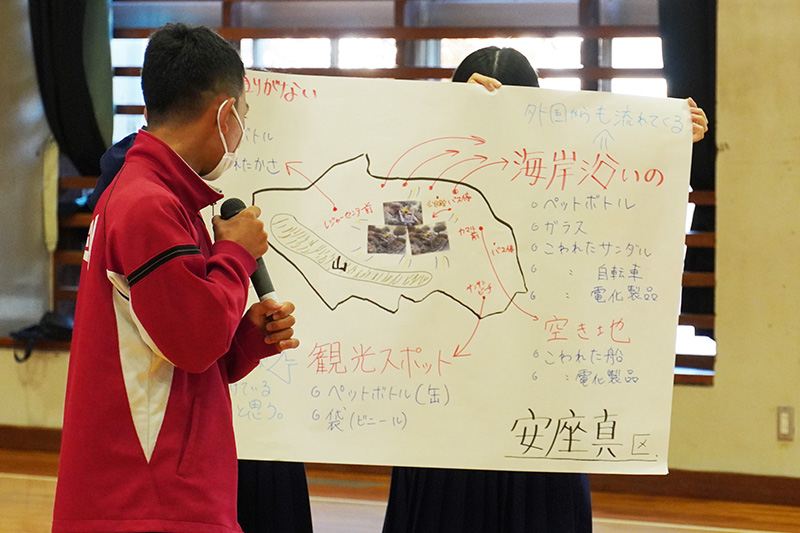 がない
外国からも流れてくる
ボトル
れたかさ
海岸沿いの
ペットボトル
ガラス
こわれたサンダル
〃 : 自転車
〃 : 電化製品
レジャーセンター前
バス停
カマル前
バス停
山
空き地
こわれた船
〃 : 電化製品
観光スポット
ペットボトル(缶)
袋(ビニール)
ている
と思う。
安座真区.